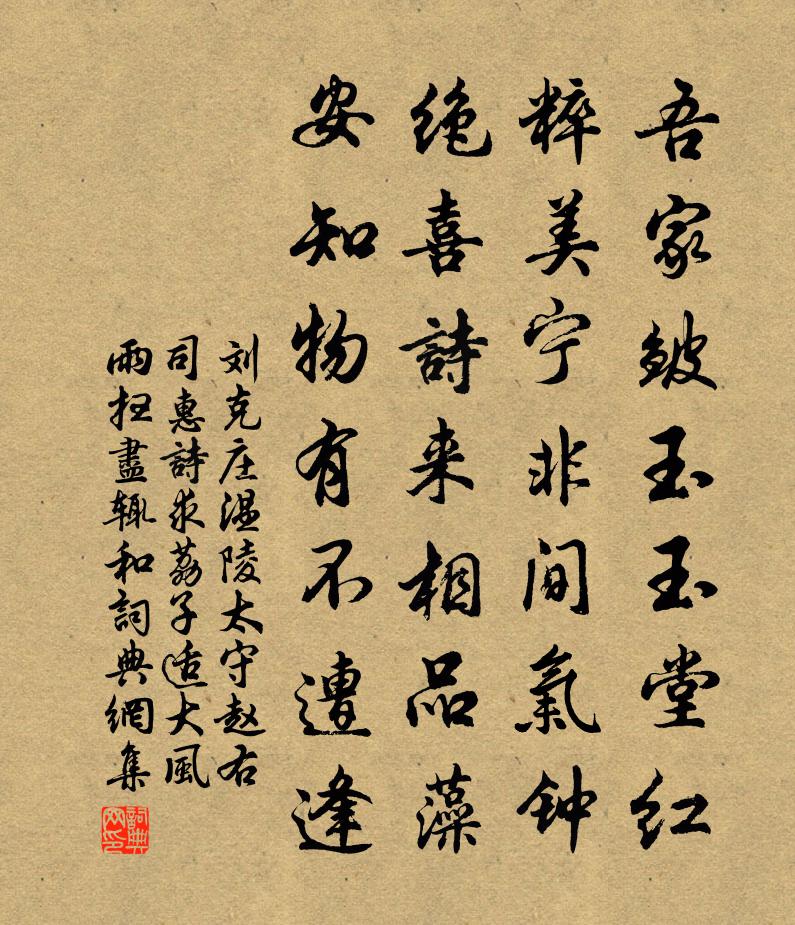 吾家皱玉玉堂红
粹美宁非间氣钟
绝喜詩来相品藻
安知物有不遭逢
刘克庄温陵太守赵右
司惠詩求荔子适大風
雨扫盡辄和詞典網集
詞典
网印